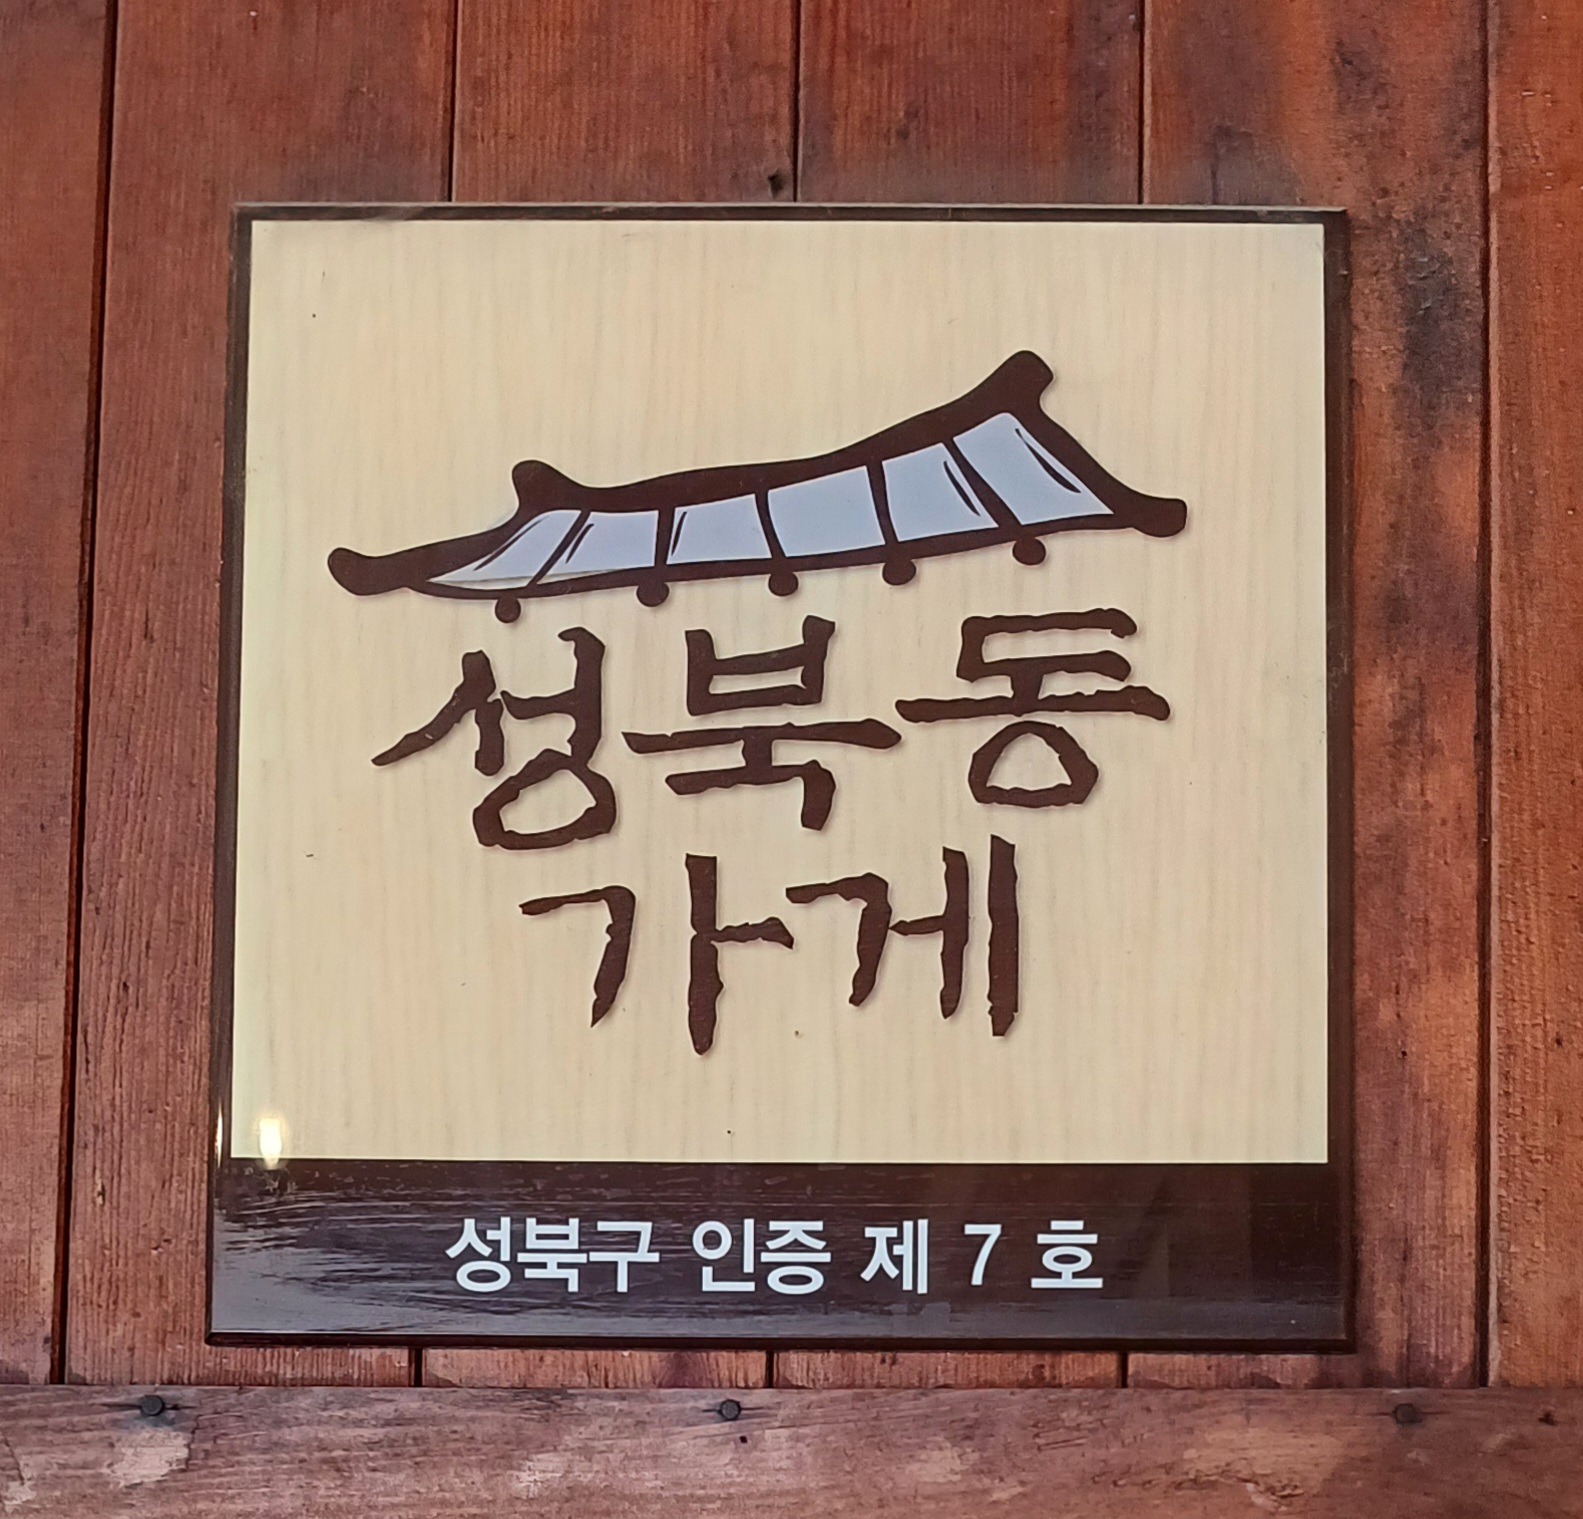 성북동
가게
성북구 인증 제 7 호